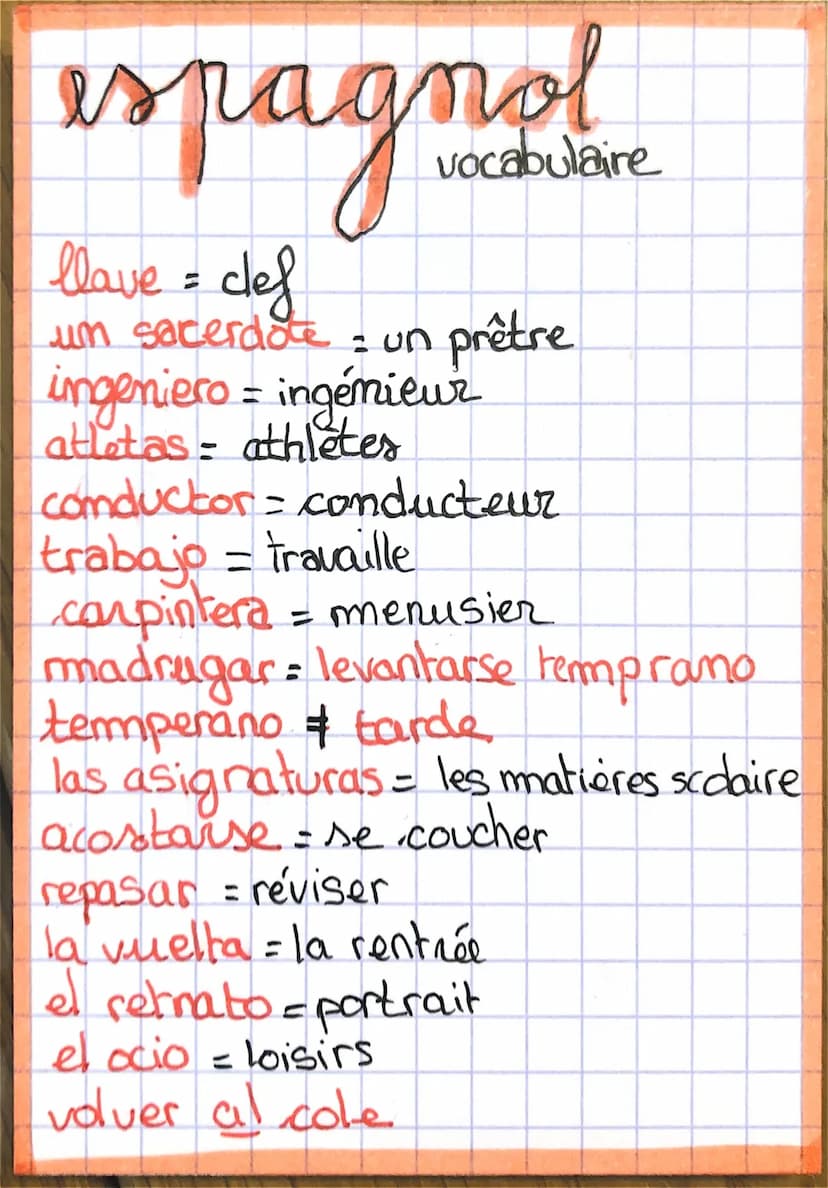 espagnol
vocabulaire
llave = clef
un sacerdote = un prêtre
ingeniero = ingénieur
atletas = athlètes
conductor = conducteur
trabajo = travaille
carpintera = menusier
madrugar = levantarse temprano
temperano ≠ tarde
las asignaturas = les matières scolaire
acostarse = se coucher
repasar = réviser
la vuelta = la rentrée
el retrato = portrait
el ocio = loisirs
volver al cole